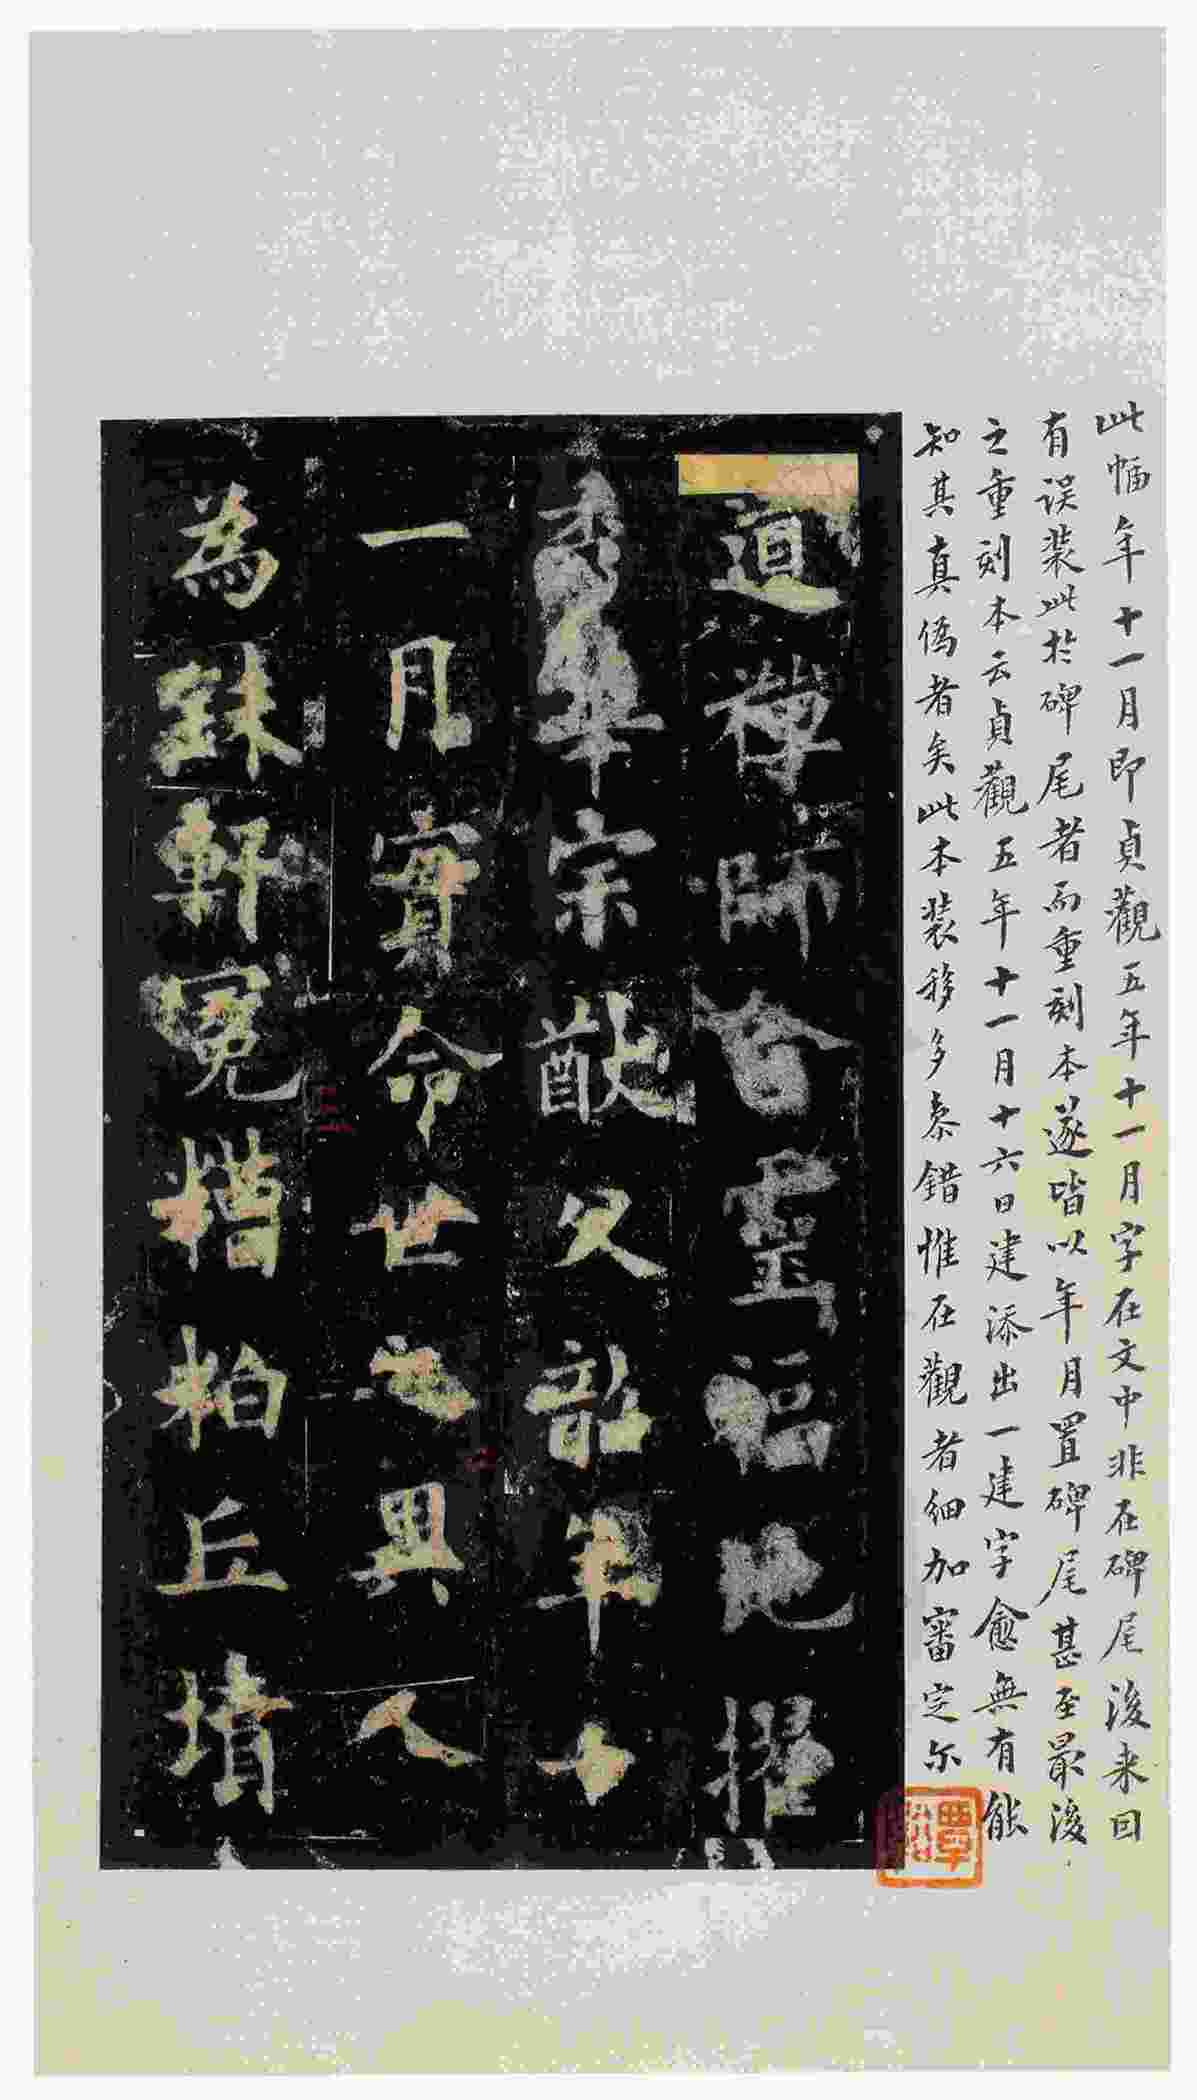 此幅年十一月即貞觀五年十一月字在文中非在碑尾後来因
有误装此於碑尾者而重刻本遂皆以年月置碑尾甚至最後
之重刻本云貞觀五年十一月十六日建添出一建字愈無有能
知其真僞者矣此本装移多叅錯惟在觀者細加審定尔
覃谿
道禪師含靈福地擢
秀華宗猷父韶年十
一月實命世之異人
為銖軒冕糟粕丘墳